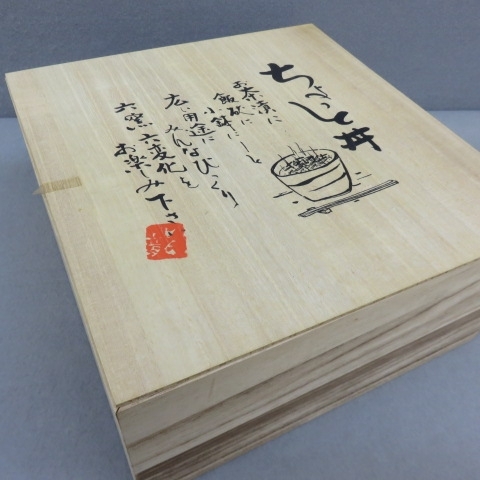 ちょいと丼
お茶漬に
飯碗に〜と
小鉢に
広い用途に
みんなびっくり
六窯六変化を
お楽み下さい